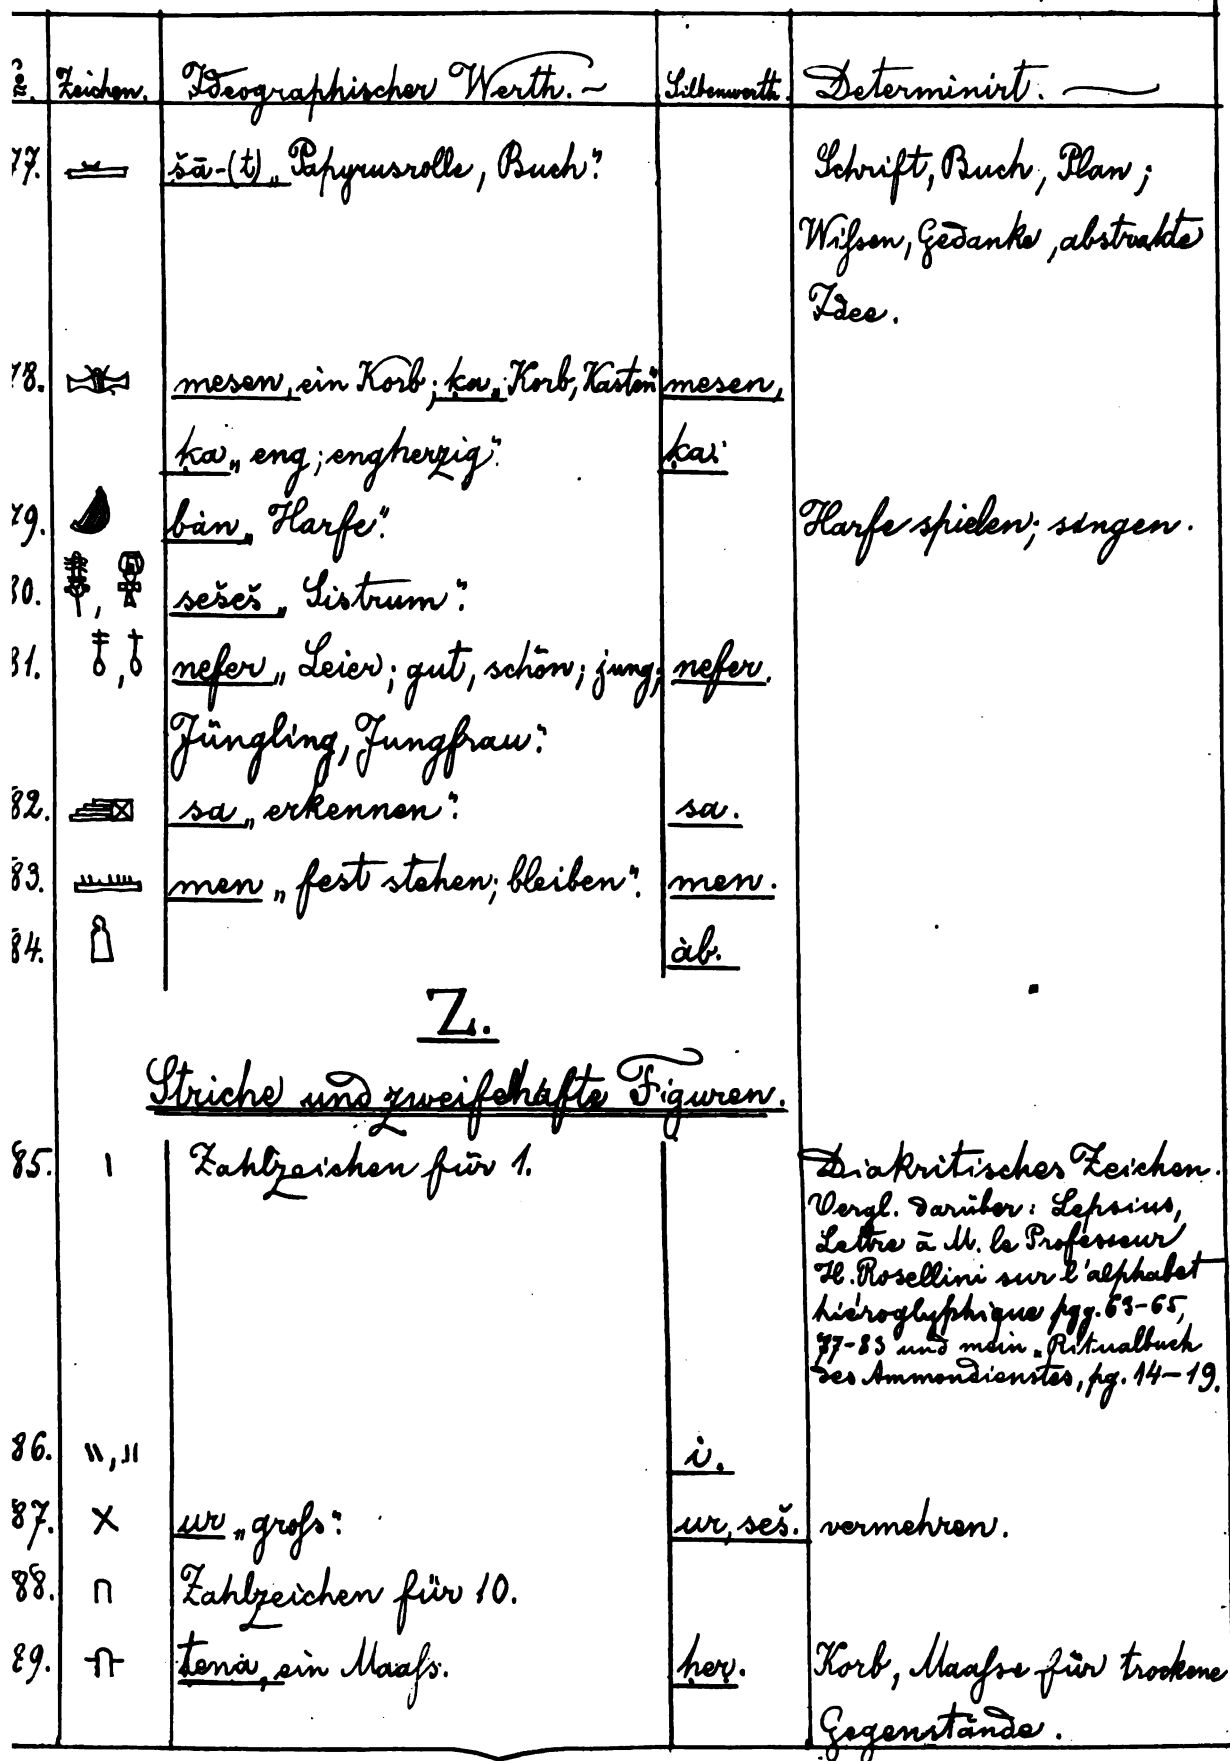 No. Zeichen. Ideographischer Werth. Silbenwerth. Determinirt.
77. šā-(t) „Papyrusrolle, Buch". Schrift, Buch, Plan;
Wißen, Gedanke, abstrakte
Idee.
78. mesen, ein Korb; ḳa „Korb, Kasten" mesen,
ḳa „eng; engherzig". ḳa.
79. bȧn „Harfe". Harfe spielen; singen.
80. , sešeš „Sistrum".
81. , nefer „Leier; gut, schön; jung; nefer.
Jüngling, Jungfrau".
82. sa „erkennen". sa.
83. men „fest stehen; bleiben". men.
84. ȧb.
Z.
Striche und zweifelhafte Figuren.
85. I Zahlzeichen für 1. Diakritisches Zeichen.
Vergl. darüber: Lepsius,
Lettre à M. le Professeur
H. Rosellini sur l'alphabet
hiéroglyphique pgg. 63-65,
77-83 und mein „Ritualbuch
des Ammondienstes, pg. 14-19.
86. \\, II i.
87. X ur „groß". ur, seš. vermehren.
88. ∩ Zahlzeichen für 10.
89. tenȧ, ein Maaß. ḥer. Korb, Maaße für trockene
Gegenstände.